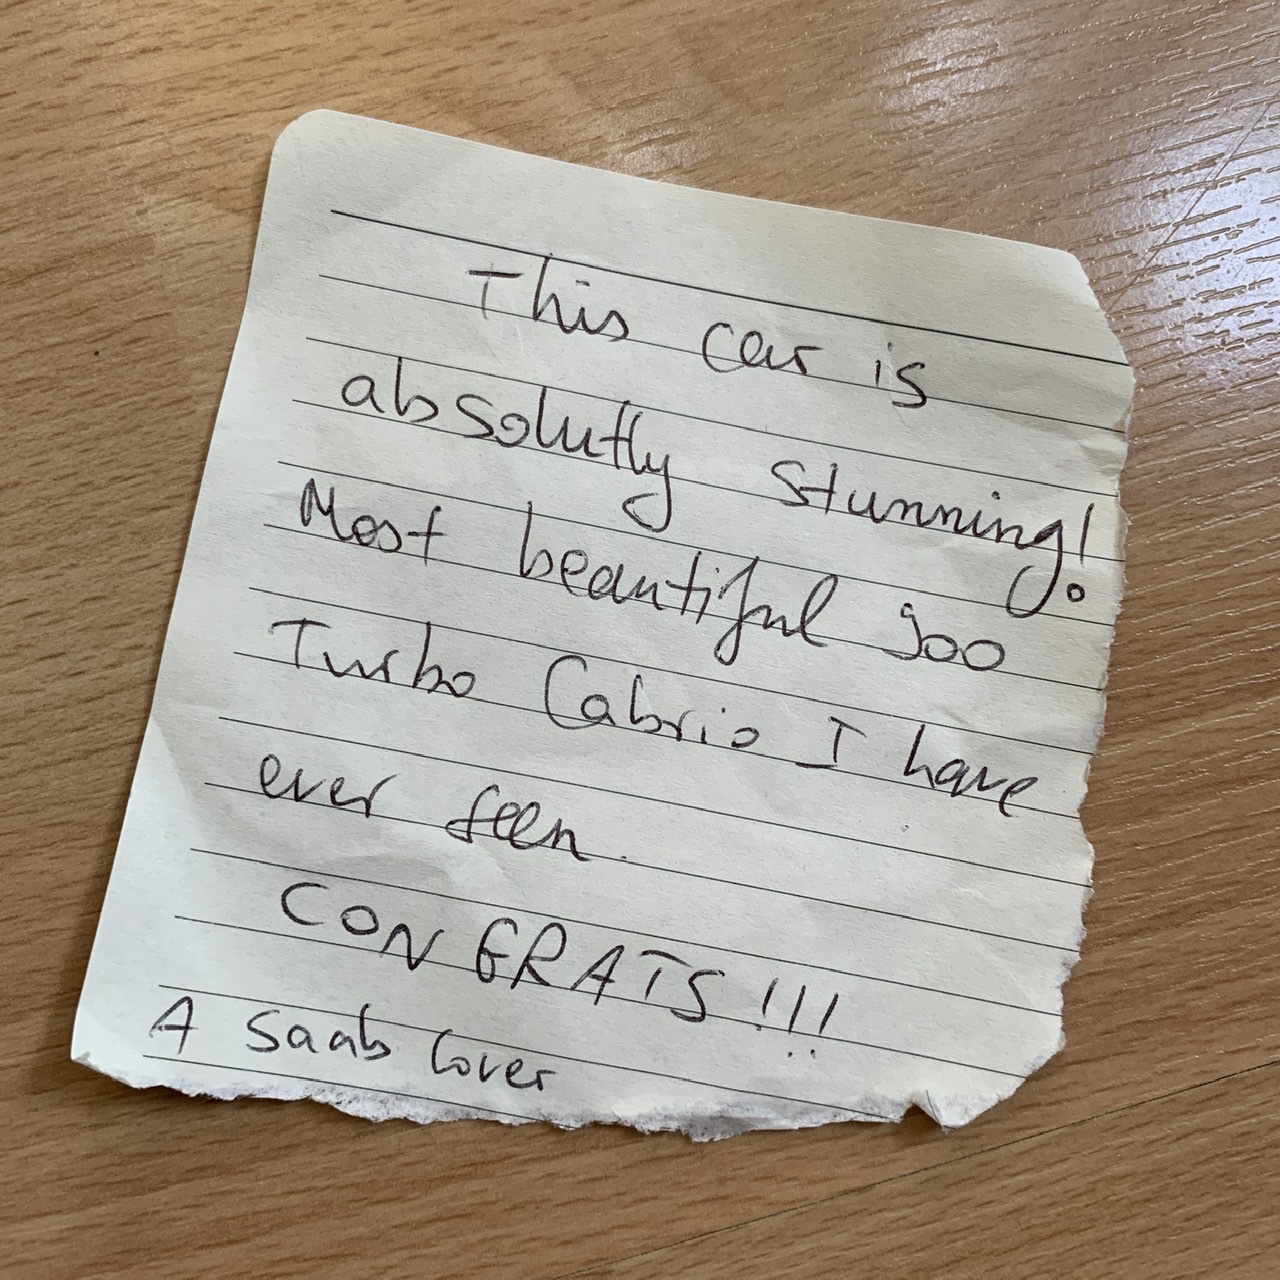 This car is
absolutly stunning!
Most beautiful 900
Turbo Cabrio I have
ever seen.
CONGRATS!!!
A saab lover